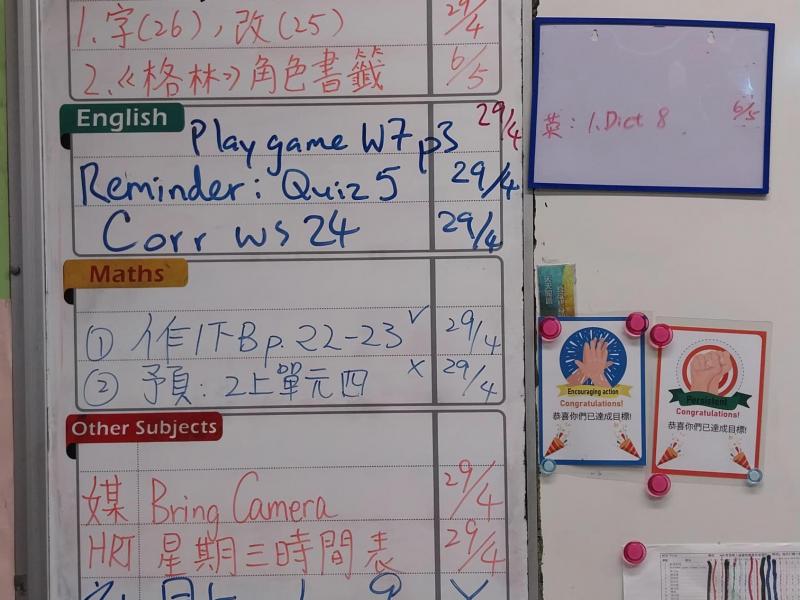 1.字(26),改(25) 29/4
2.《格林》角色書籤 6/5
English
Play game W7 p3 29/4
Reminder: Quiz 5 29/4
Corr WS 24 29/4
Maths
① 作1下B p.22-23 ✓ 29/4
② 預:2上單元四 × 29/4
Other Subjects
媒 Bring Camera 29/4
HRT 星期三時間表 29/4
英:1.Dict 8 6/5
Encouraging action
Congratulations!
恭喜你們已達成目標!
Persistent
Congratulations!
恭喜你們已達成目標!